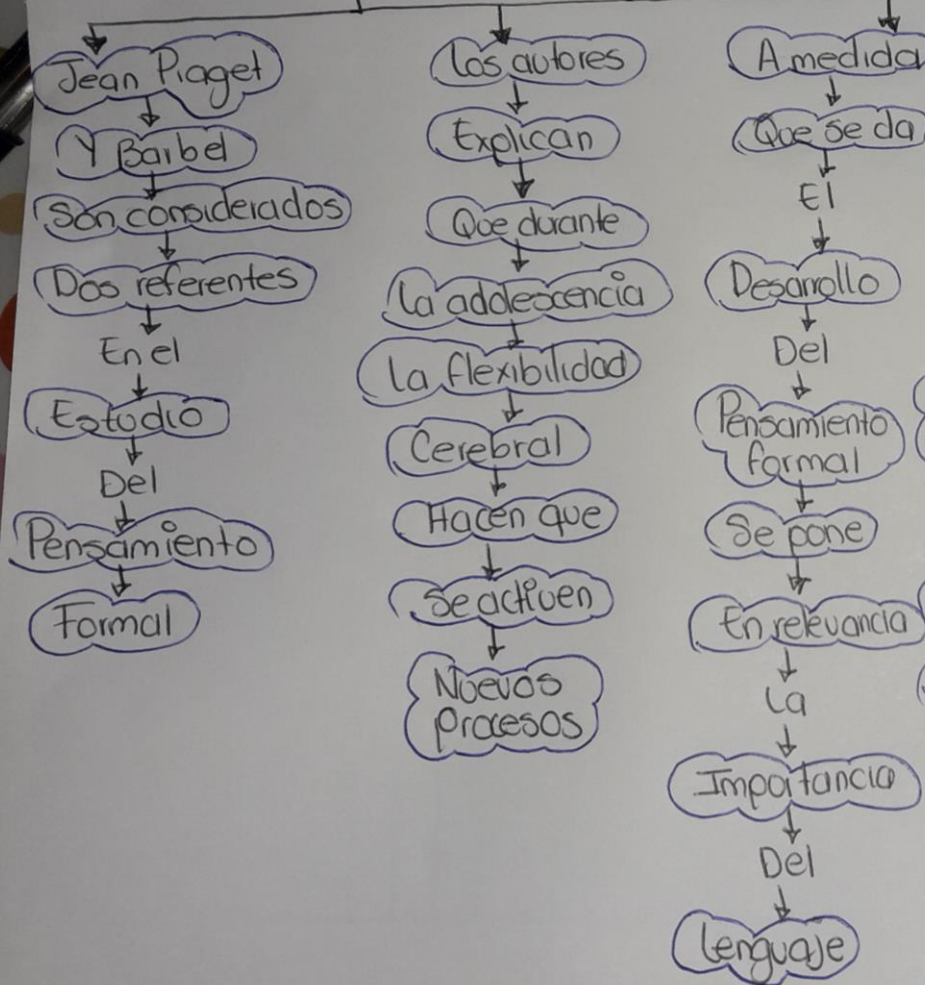 Jean Piaget
Y Barbel
Son considerados
Dos referentes
En el
Estudio
Del
Pensamiento
Formal
Los autores
Explican
Que durante
La adolescencia
La flexibilidad
Cerebral
Hacen que
Se activen
Nuevos
procesos
A medida
Que se da
El
Desarrollo
Del
Pensamiento
formal
Se pone
En relevancia
La
Importancia
Del
Lenguaje